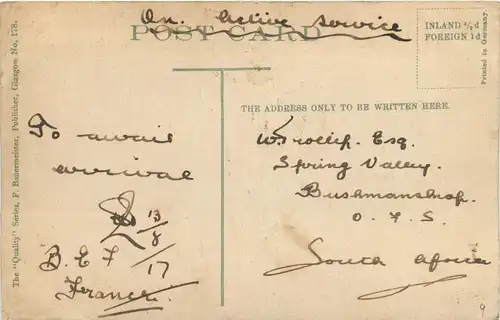 On active service
POST CARD
INLAND ½d
FOREIGN 1d
Printed in Germany.
The "Quality" Series, F. Bauermeister, Publisher, Glasgow No. 178.
THE ADDRESS ONLY TO BE WRITTEN HERE.
To await
arrival
13/8/17
B.E.F
France.
W. Trollip. Esq.
Spring Valley.
Bushmanshop.
O. F. S.
South Africa
9